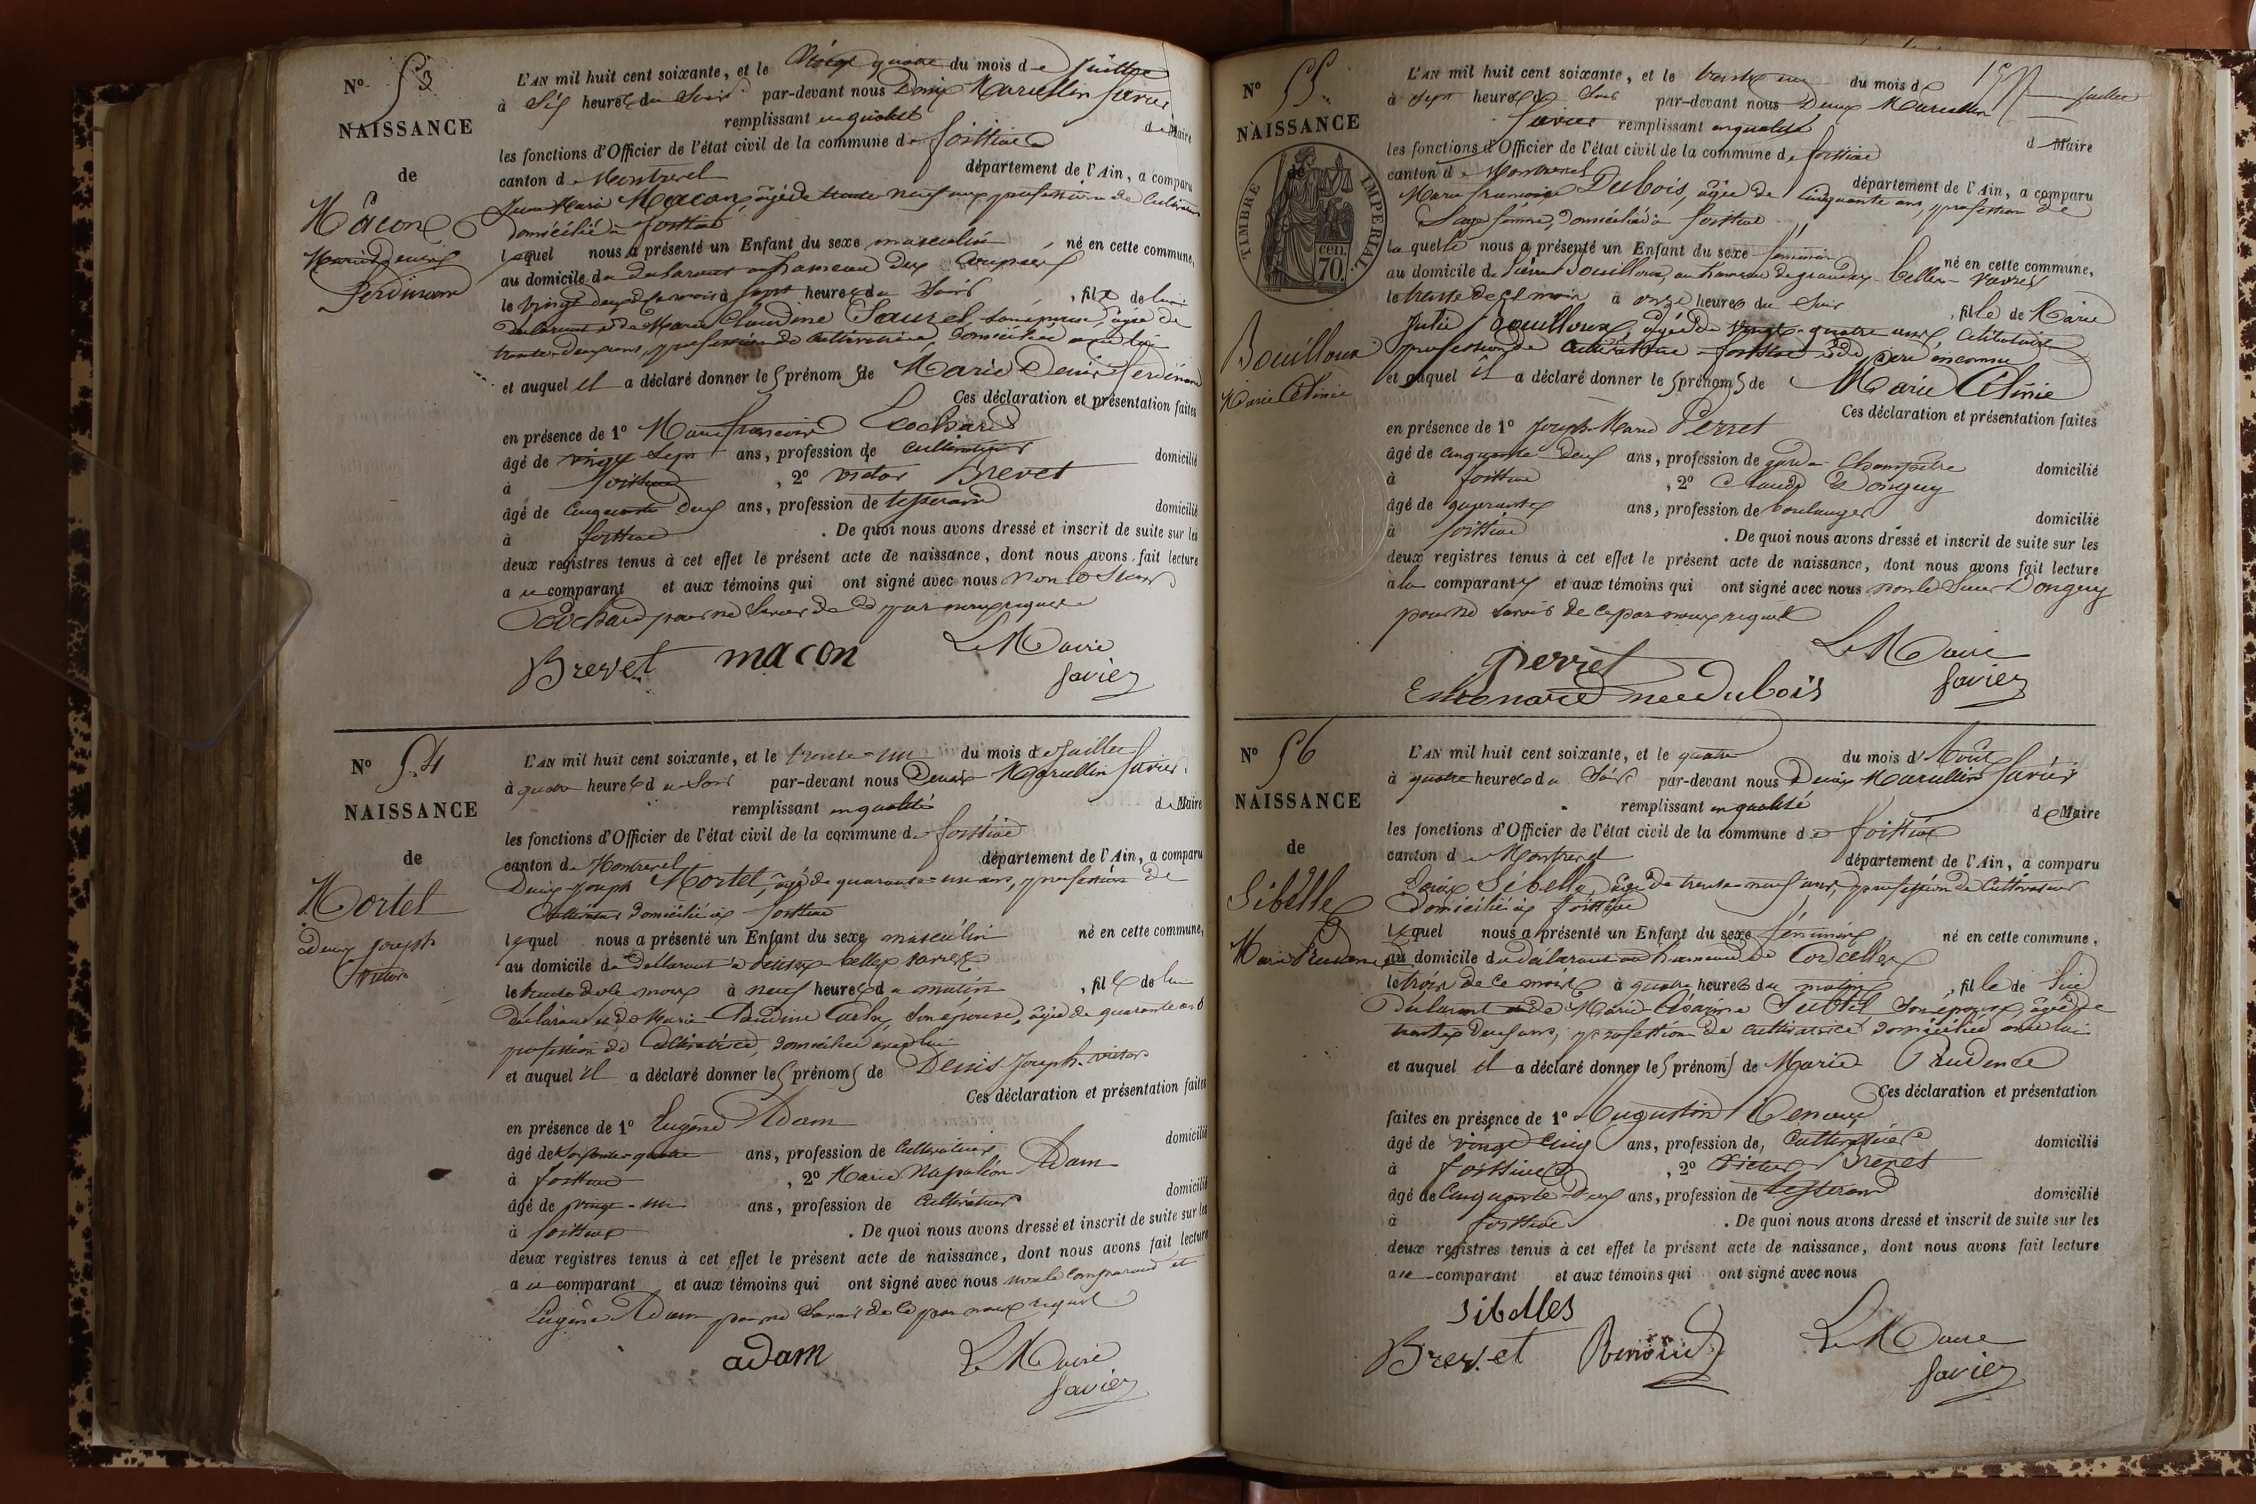 N° 53
NAISSANCE
de
Mâcon
Marie Denis
Ferdinand
L'AN mil huit cent soixante, et le Vingt quatre du mois de Juillet
à Six heures du Soir par-devant nous Denis Marcellin Favier
remplissant en qualité de Maire
les fonctions d'Officier de l'état civil de la commune de foissiat
canton de Montrevel département de l'Ain, a comparu
Jean Marie Macon, âgé de trente neuf ans, profession de Cultivateur
domicilié à foissiat
lequel nous a présenté un Enfant du sexe masculin, né en cette commune,
au domicile du déclarant au hameau des
le vingt deux de ce mois à sept heures du Soir, fils de lui
déclarant et de Marie Claudine Sauzet son épouse, âgée de
trente deux ans, profession de cultivatrice, domiciliée avec lui
et auquel il a déclaré donner les prénoms de Marie Denis Ferdinand
Ces déclaration et présentation faites
en présence de 1° Marie françois Cochard
âgé de vingt sept ans, profession de cultivateur domicilié
à foissiat, 2° victor Brevet
âgé de Cinquante deux ans, profession de tisserand domicilié
à foissiat. De quoi nous avons dressé et inscrit de suite sur les
deux registres tenus à cet effet le présent acte de naissance, dont nous avons fait lecture
au comparant et aux témoins qui ont signé avec nous non le Sieur
Cochard pour ne Savoir de ce par nous requis
Brevet macon Le Maire
favier
N° 54
NAISSANCE
de
Mortel
Denis Joseph
Victor
L'AN mil huit cent soixante, et le trente-un du mois de Juillet
à quatre heures du Soir par-devant nous Denis Marcellin Favier
remplissant en qualité de Maire
les fonctions d'Officier de l'état civil de la commune de foissiat
canton de Montrevel département de l'Ain, a comparu
Denis Joseph Mortel, âgé de quarante-un ans, profession de
Cultivateur domicilié à foissiat
lequel nous a présenté un Enfant du sexe masculin né en cette commune,
au domicile du déclarant à
le trente de ce mois à neuf heures du matin, fils de lui
déclarant et de Marie Claudine son épouse, âgée de quarante ans
profession de Cultivatrice, domiciliée avec lui
et auquel il a déclaré donner les prénoms de Denis Joseph victor
Ces déclaration et présentation faites
en présence de 1° Eugène Adam
âgé de soixante-quatre ans, profession de Cultivateur domicilié
à foissiat, 2° Marie Napoléon Adam
âgé de vingt-un ans, profession de Cultivateur domicilié
à foissiat. De quoi nous avons dressé et inscrit de suite sur les
deux registres tenus à cet effet le présent acte de naissance, dont nous avons fait lecture
au comparant et aux témoins qui ont signé avec nous non le comparant et
Eugène Adam pour ne Savoir de ce par nous requis
adam Le Maire
favier
N° 55
NAISSANCE
de
TIMBRE IMPERIAL.
cen.
70.
Bouilloux
Marie Célinie
L'AN mil huit cent soixante, et le trente un du mois de Juillet
à Sept heures du Soir par-devant nous Denis Marcellin
Favier remplissant en qualité de Maire
les fonctions d'Officier de l'état civil de la commune de foissiat
canton de Montrevel département de l'Ain, a comparu
Marie françoise Dubois, âgée de Cinquante ans, profession de
Sage femme, domiciliée à foissiat
laquelle nous a présenté un Enfant du sexe féminin né en cette commune,
au domicile de Pierre Bouilloux, au hameau de
le trente de ce mois à onze heures du Soir, fille de Marie
Julie Bouilloux, âgée de vingt-quatre ans, célibataire
profession de cultivatrice à foissiat et de père inconnu
et auquel il a déclaré donner les prénoms de Marie Célinie
Ces déclaration et présentation faites
en présence de 1° Joseph Marie Perret
âgé de cinquante deux ans, profession de garde Champêtre domicilié
à foissiat, 2° Claude Donguy
âgé de quarante ans, profession de boulanger domicilié
à foissiat. De quoi nous avons dressé et inscrit de suite sur les
deux registres tenus à cet effet le présent acte de naissance, dont nous avons fait lecture
à la comparante et aux témoins qui ont signé avec nous non le Sieur Donguy
pour ne Savoir de ce par nous requis
perret Le Maire
née dubois favier
N° 56
NAISSANCE
de
Sibelle
Marie Prudence
L'AN mil huit cent soixante, et le quatre du mois d'Août
à quatre heures du Soir par-devant nous Denis Marcellin Favier
remplissant en qualité de Maire
les fonctions d'Officier de l'état civil de la commune de foissiat
canton de Montrevel département de l'Ain, a comparu
Denis Sibelle, âgé de trente-neuf ans, profession de Cultivateur
domicilié à foissiat
lequel nous a présenté un Enfant du sexe féminin né en cette commune,
au domicile du déclarant au hameau de Cordelles
le trois de ce mois à quatre heures du matin, fille de lui
déclarant et de Marie Son épouse, âgée de
trente deux ans, profession de cultivatrice domiciliée avec lui
et auquel il a déclaré donner les prénoms de Marie Prudence
Ces déclaration et présentation
faites en présence de 1° Augustin Renoud
âgé de vingt cinq ans, profession de, cultivateur domicilié
à foissiat, 2° Victor Brevet
âgé de Cinquante-deux ans, profession de tisserand domicilié
à foissiat. De quoi nous avons dressé et inscrit de suite sur les
deux registres tenus à cet effet le présent acte de naissance, dont nous avons fait lecture
au comparant et aux témoins qui ont signé avec nous
sibelles
Brevet Renoud Le Maire
favier